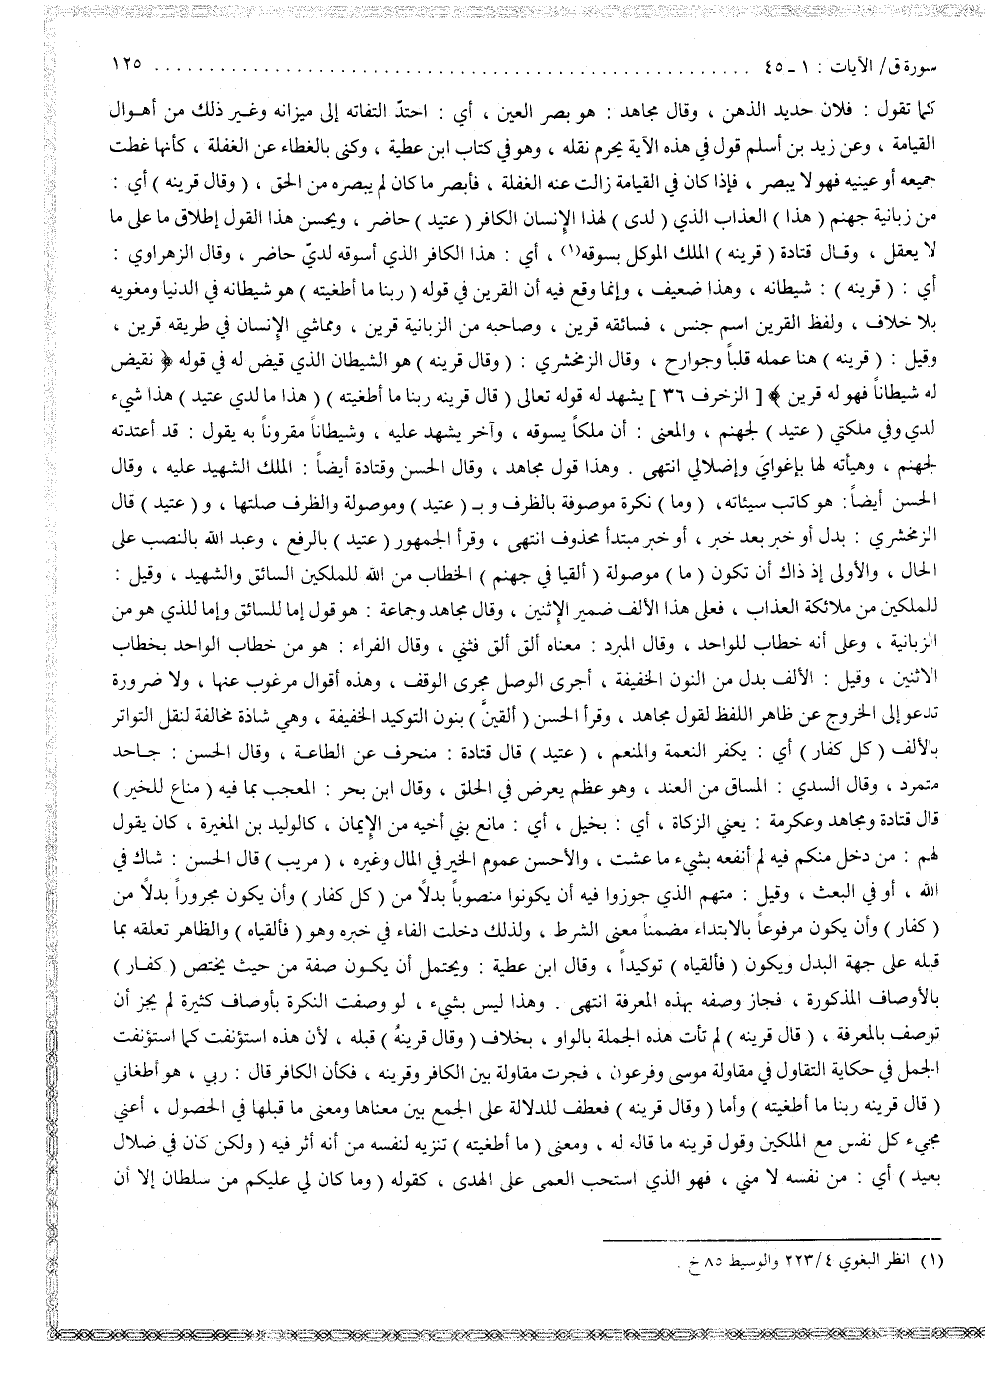 سورة ق/ الآيات : ١ ـ ٤٥ . . . . . . . . . . . . . . . . . . . . . . . . . . . . . . . . . . . . . . . . . . . . . . . . . . . . . . ١٢٥
كما تقول : فلان حديد الذهن ، وقال مجاهد : هو بصر العين ، أي : احتدّ التفاته إلى ميزانه وغير ذلك من أهوال
القيامة ، وعن زيد بن أسلم قول في هذه الآية يحرم نقله ، وهو في كتاب ابن عطية ، وكنى بالغطاء عن الغفلة ، كأنها غطت
جميعه أو عينيه فهو لا يبصر ، فإذا كان في القيامة زالت عنه الغفلة ، فأبصر ما كان لم يبصره من الحق ، ( وقال قرينه ) أي :
من زبانية جهنم ( هذا ) العذاب الذي ( لدى ) لهذا الإنسان الكافر ( عتيد ) حاضر ، ويحسن هذا القول إطلاق ما على ما
لا يعقل ، وقال قتادة ( قرينه ) الملك الموكل بسوقه(١) ، أي : هذا الكافر الذي أسوقه لديّ حاضر ، وقال الزهراوي :
أي : ( قرينه ) : شيطانه ، وهذا ضعيف ، وإنما وقع فيه أن القرين في قوله ( ربنا ما أطغيته ) هو شيطانه في الدنيا ومغويه
بلا خلاف ، ولفظ القرين اسم جنس ، فسائقه قرين ، وصاحبه من الزبانية قرين ، ومماشي الإنسان في طريقه قرين ،
وقيل : ( قرينه ) هنا عمله قلباً وجوارح ، وقال الزمخشري : ( وقال قرينه ) هو الشيطان الذي قيض له في قوله ﴿ نقيض
له شيطاناً فهو له قرين ﴾ [ الزخرف ٣٦ ] يشهد له قوله تعالى ( قال قرينه ربنا ما أطغيته ) ( هذا ما لدي عتيد ) هذا شيء
لدي وفي ملكتي ( عتيد ) لجهنم ، والمعنى : أن ملكاً يسوقه ، وآخر يشهد عليه ، وشيطاناً مقروناً به يقول : قد أعتدته
لجهنم ، وهيأته لها بإغوايَ وإضلالي انتهى . وهذا قول مجاهد ، وقال الحسن وقتادة أيضاً : الملك الشهيد عليه ، وقال
الحسن أيضاً : هو كاتب سيئاته، ( وما ) نكرة موصوفة بالظرف و بـ ( عتيد ) وموصولة والظرف صلتها ، و ( عتيد ) قال
الزمخشري : بدل أو خبر بعد خبر ، أو خبر مبتدأ محذوف انتهى ، وقرأ الجمهور ( عتيد ) بالرفع ، وعبد الله بالنصب على
الحال ، والأولى إذ ذاك أن تكون ( ما ) موصولة ( ألقيا في جهنم ) الخطاب من الله للملكين السائق والشهيد ، وقيل :
للملكين من ملائكة العذاب ، فعلى هذا الألف ضمير الإثنين ، وقال مجاهد وجماعة : هو قول إما للسائق وإما للذي هو من
الزبانية ، وعلى أنه خطاب للواحد ، وقال المبرد : معناه ألق ألق فثني ، وقال الفراء : هو من خطاب الواحد بخطاب
الاثنين ، وقيل : الألف بدل من النون الخفيفة ، أجرى الوصل مجرى الوقف ، وهذه أقوال مرغوب عنها ، ولا ضرورة
تدعو إلى الخروج عن ظاهر اللفظ لقول مجاهد ، وقرأ الحسن ( ألقينَّ ) بنون التوكيد الخفيفة ، وهي شاذة مخالفة لنقل التواتر
بالألف ( كل كفار ) أي : يكفر النعمة والمنعم ، ( عتيد ) قال قتادة : منحرف عن الطاعة ، وقال الحسن : جاحد
متمرد ، وقال السدي : المساق من العند ، وهو عظم يعرض في الحلق ، وقال ابن بحر : المعجب بما فيه ( مناع للخير )
قال قتادة ومجاهد وعكرمة : يعني الزكاة ، أي : بخيل ، أي : مانع بني أخيه من الإيمان ، كالوليد بن المغيرة ، كان يقول
لهم : من دخل منكم فيه لم أنفعه بشيء ما عشت ، والأحسن عموم الخير في المال وغيره ، ( مريب ) قال الحسن : شاك في
الله ، أو في البعث ، وقيل : متهم الذي جوزوا فيه أن يكونوا منصوباً بدلًا من ( كل كفار ) وأن يكون مجروراً بدلًا من
( كفار ) وأن يكون مرفوعاً بالابتداء مضمناً معنى الشرط ، ولذلك دخلت الفاء في خبره وهو ( فألقياه ) والظاهر تعلقه بما
قبله على جهة البدل ويكون ( فألقياه ) توكيداً ، وقال ابن عطية : ويحتمل أن يكون صفة من حيث يختص ( كفار )
بالأوصاف المذكورة ، فجاز وصفه بهذه المعرفة انتهى . وهذا ليس بشيء ، لو وصفت النكرة بأوصاف كثيرة لم يجز أن
توصف بالمعرفة ، ( قال قرينه ) لم تأت هذه الجملة بالواو ، بخلاف ( وقال قرينهُ ) قبله ، لأن هذه استؤنفت كما استؤنفت
الجمل في حكاية التقاول في مقاولة موسى وفرعون ، فجرت مقاولة بين الكافر وقرينه ، فكأن الكافر قال : ربي ، هو أطغاني
( قال قرينه ربنا ما أطغيته ) وأما ( وقال قرينه ) فعطف للدلالة على الجمع بين معناها ومعنى ما قبلها في الحصول ، أعني
مجيء كل نفس مع الملكين وقول قرينه ما قاله له ، ومعنى ( ما أطغيته ) تنزيه لنفسه من أنه أثر فيه ( ولكن كان في ضلال
بعيد ) أي : من نفسه لا مني ، فهو الذي استحب العمى على الهدى ، كقوله ( وما كان لي عليكم من سلطان إلا أن
(١) انظر البغوي ٤/ ٢٢٣ والوسيط ٨٥ خ .